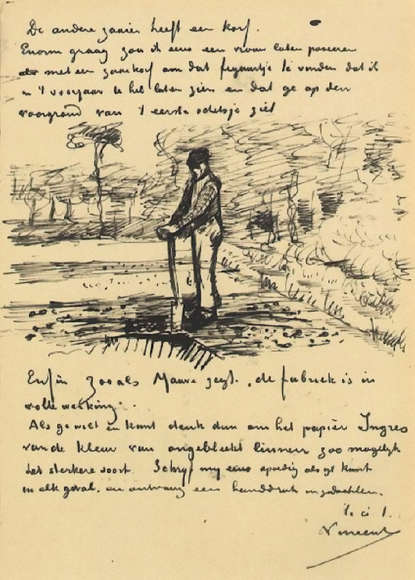 De andere zaaier heeft een korf.
Enorm graag zou ik eens een vrouw laten poseeren
met een zaaikorf om dat figuurtje te vinden dat ik
in 't voorjaar u heb laten zien en dat ge op den
voorgrond van 't eerste schetsje ziet
Enfin zooals Mauve zegt, de fabriek is in
volle werking.
Als ge wilt en kunt denk dan om het papier Ingres
van de kleur van ongebleekt linnen zoo mogelijk
het sterkere soort. Schrijf mij eens spoedig als ge kunt
in elk geval, en ontvang een handdruk in gedachten.
t. à t.
Vincent